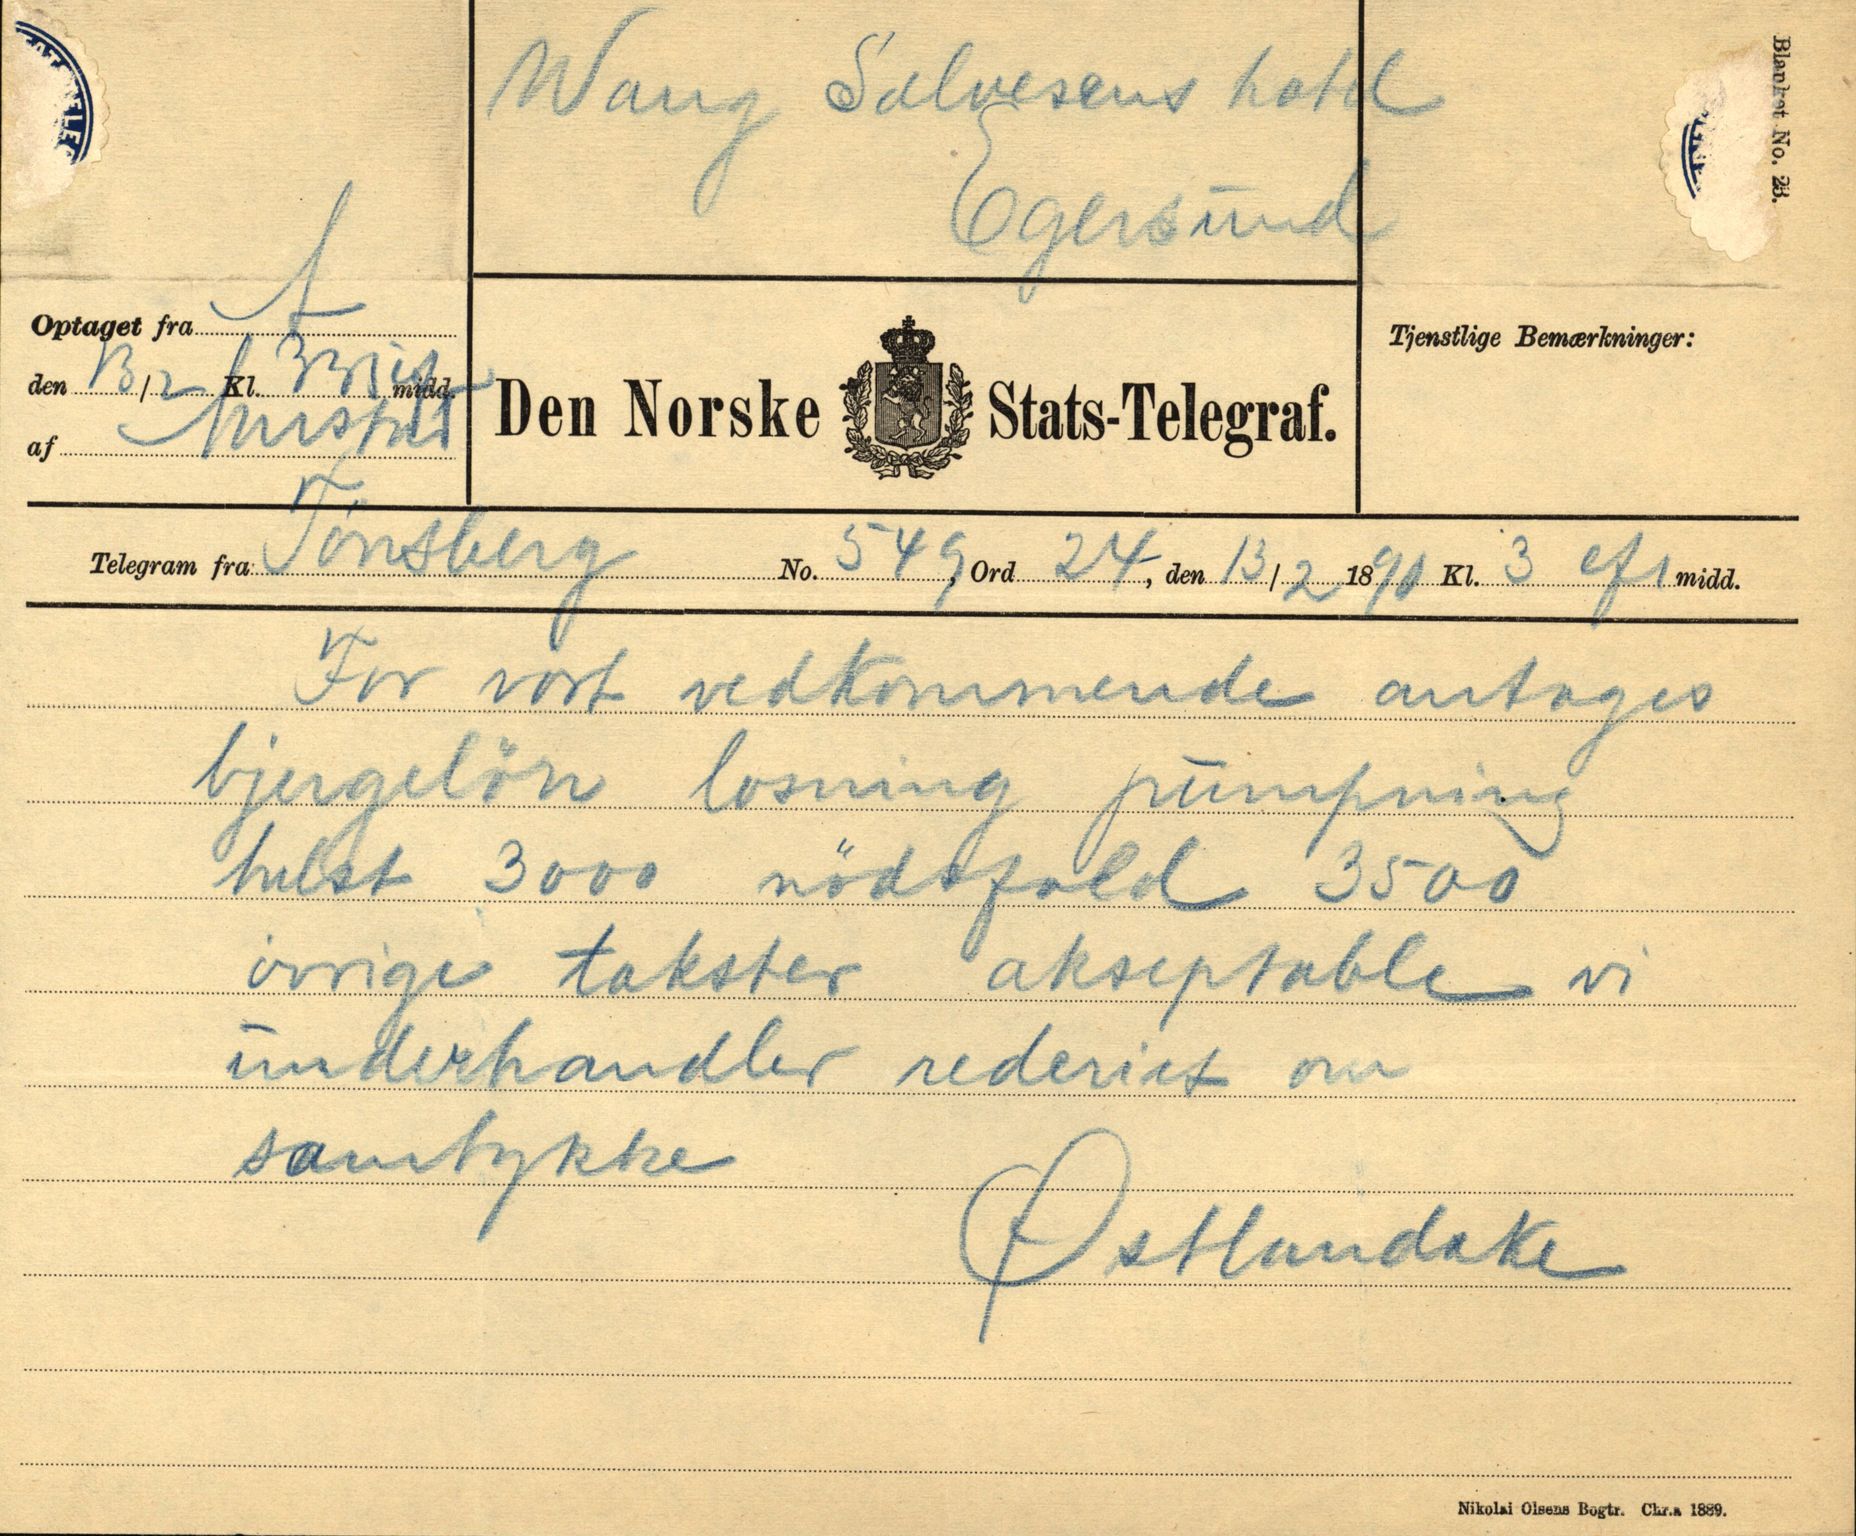 Wang Salvesens hotel
Egersund
Blanket No. 23.
Optaget fra A
den 13/2 Kl. midd.
af
Den Norske Stats-Telegraf.
Tjenstlige Bemærkninger:
Telegram fra Tönsberg No. 549, Ord 24, den 13/2 1890 Kl. 3 eft midd.
For vort vedkommende antages
bjergelön losning pumpning
helst 3000 nödsfald 3500
övrige takster akseptable vi
underhandler rederiet om
samtykke
Østlandske
Nikolai Olsens Bogtr. Chr.a 1889.